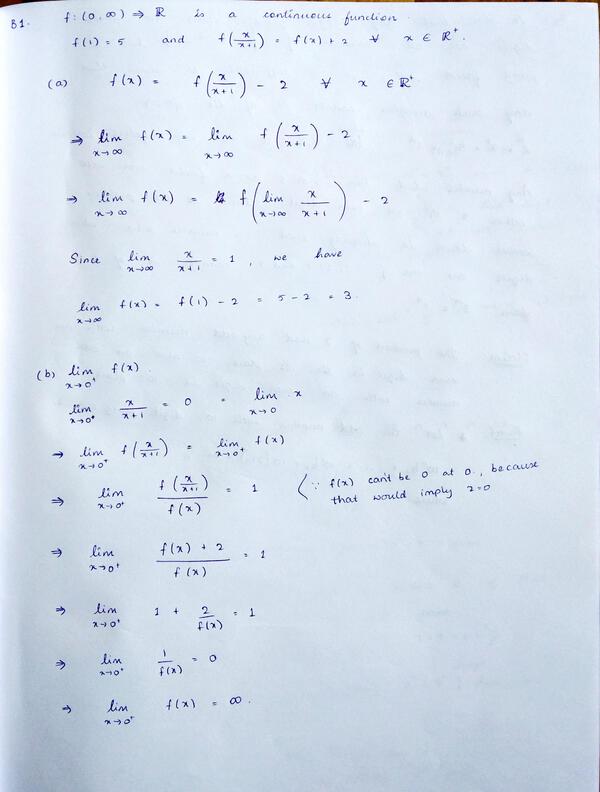 B1. f : (0, ∞) ⇒ ℝ is a continuous function.
f(1) = 5 and f(x/(x+1)) = f(x) + 2 ∀ x ∈ ℝ⁺.
(a) f(x) = f(x/(x+1)) - 2 ∀ x ∈ ℝ⁺
⇒ lim_{x→∞} f(x) = lim_{x→∞} f(x/(x+1)) - 2
⇒ lim_{x→∞} f(x) = f(lim_{x→∞} x/(x+1)) - 2
Since lim_{x→∞} x/(x+1) = 1, we have
lim_{x→∞} f(x) = f(1) - 2 = 5 - 2 = 3.
(b) lim_{x→0⁺} f(x).
lim_{x→0⁺} x/(x+1) = 0 = lim_{x→0} x
→ lim_{x→0⁺} f(x/(x+1)) = lim_{x→0⁺} f(x)
⇒ lim_{x→0⁺} f(x/(x+1))/f(x) = 1 (∵ f(x) can't be 0 at 0, because
that would imply 2=0
⇒ lim_{x→0⁺} (f(x) + 2)/f(x) = 1
⇒ lim_{x→0⁺} 1 + 2/f(x) = 1
⇒ lim_{x→0⁺} 1/f(x) = 0
⇒ lim_{x→0⁺} f(x) = ∞.